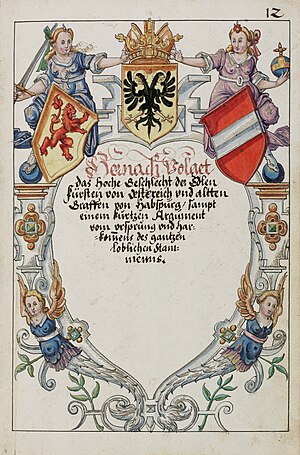 12
Hernach Volget
das hoche Geschlecht der Edlen
fürsten von Össterrich vnd altten
Graffen von Habspurg / sampt
einem kurtzen Argument
vom vrsprung vnd har-
-komens des gantzen
loblichen Stam-
mens.